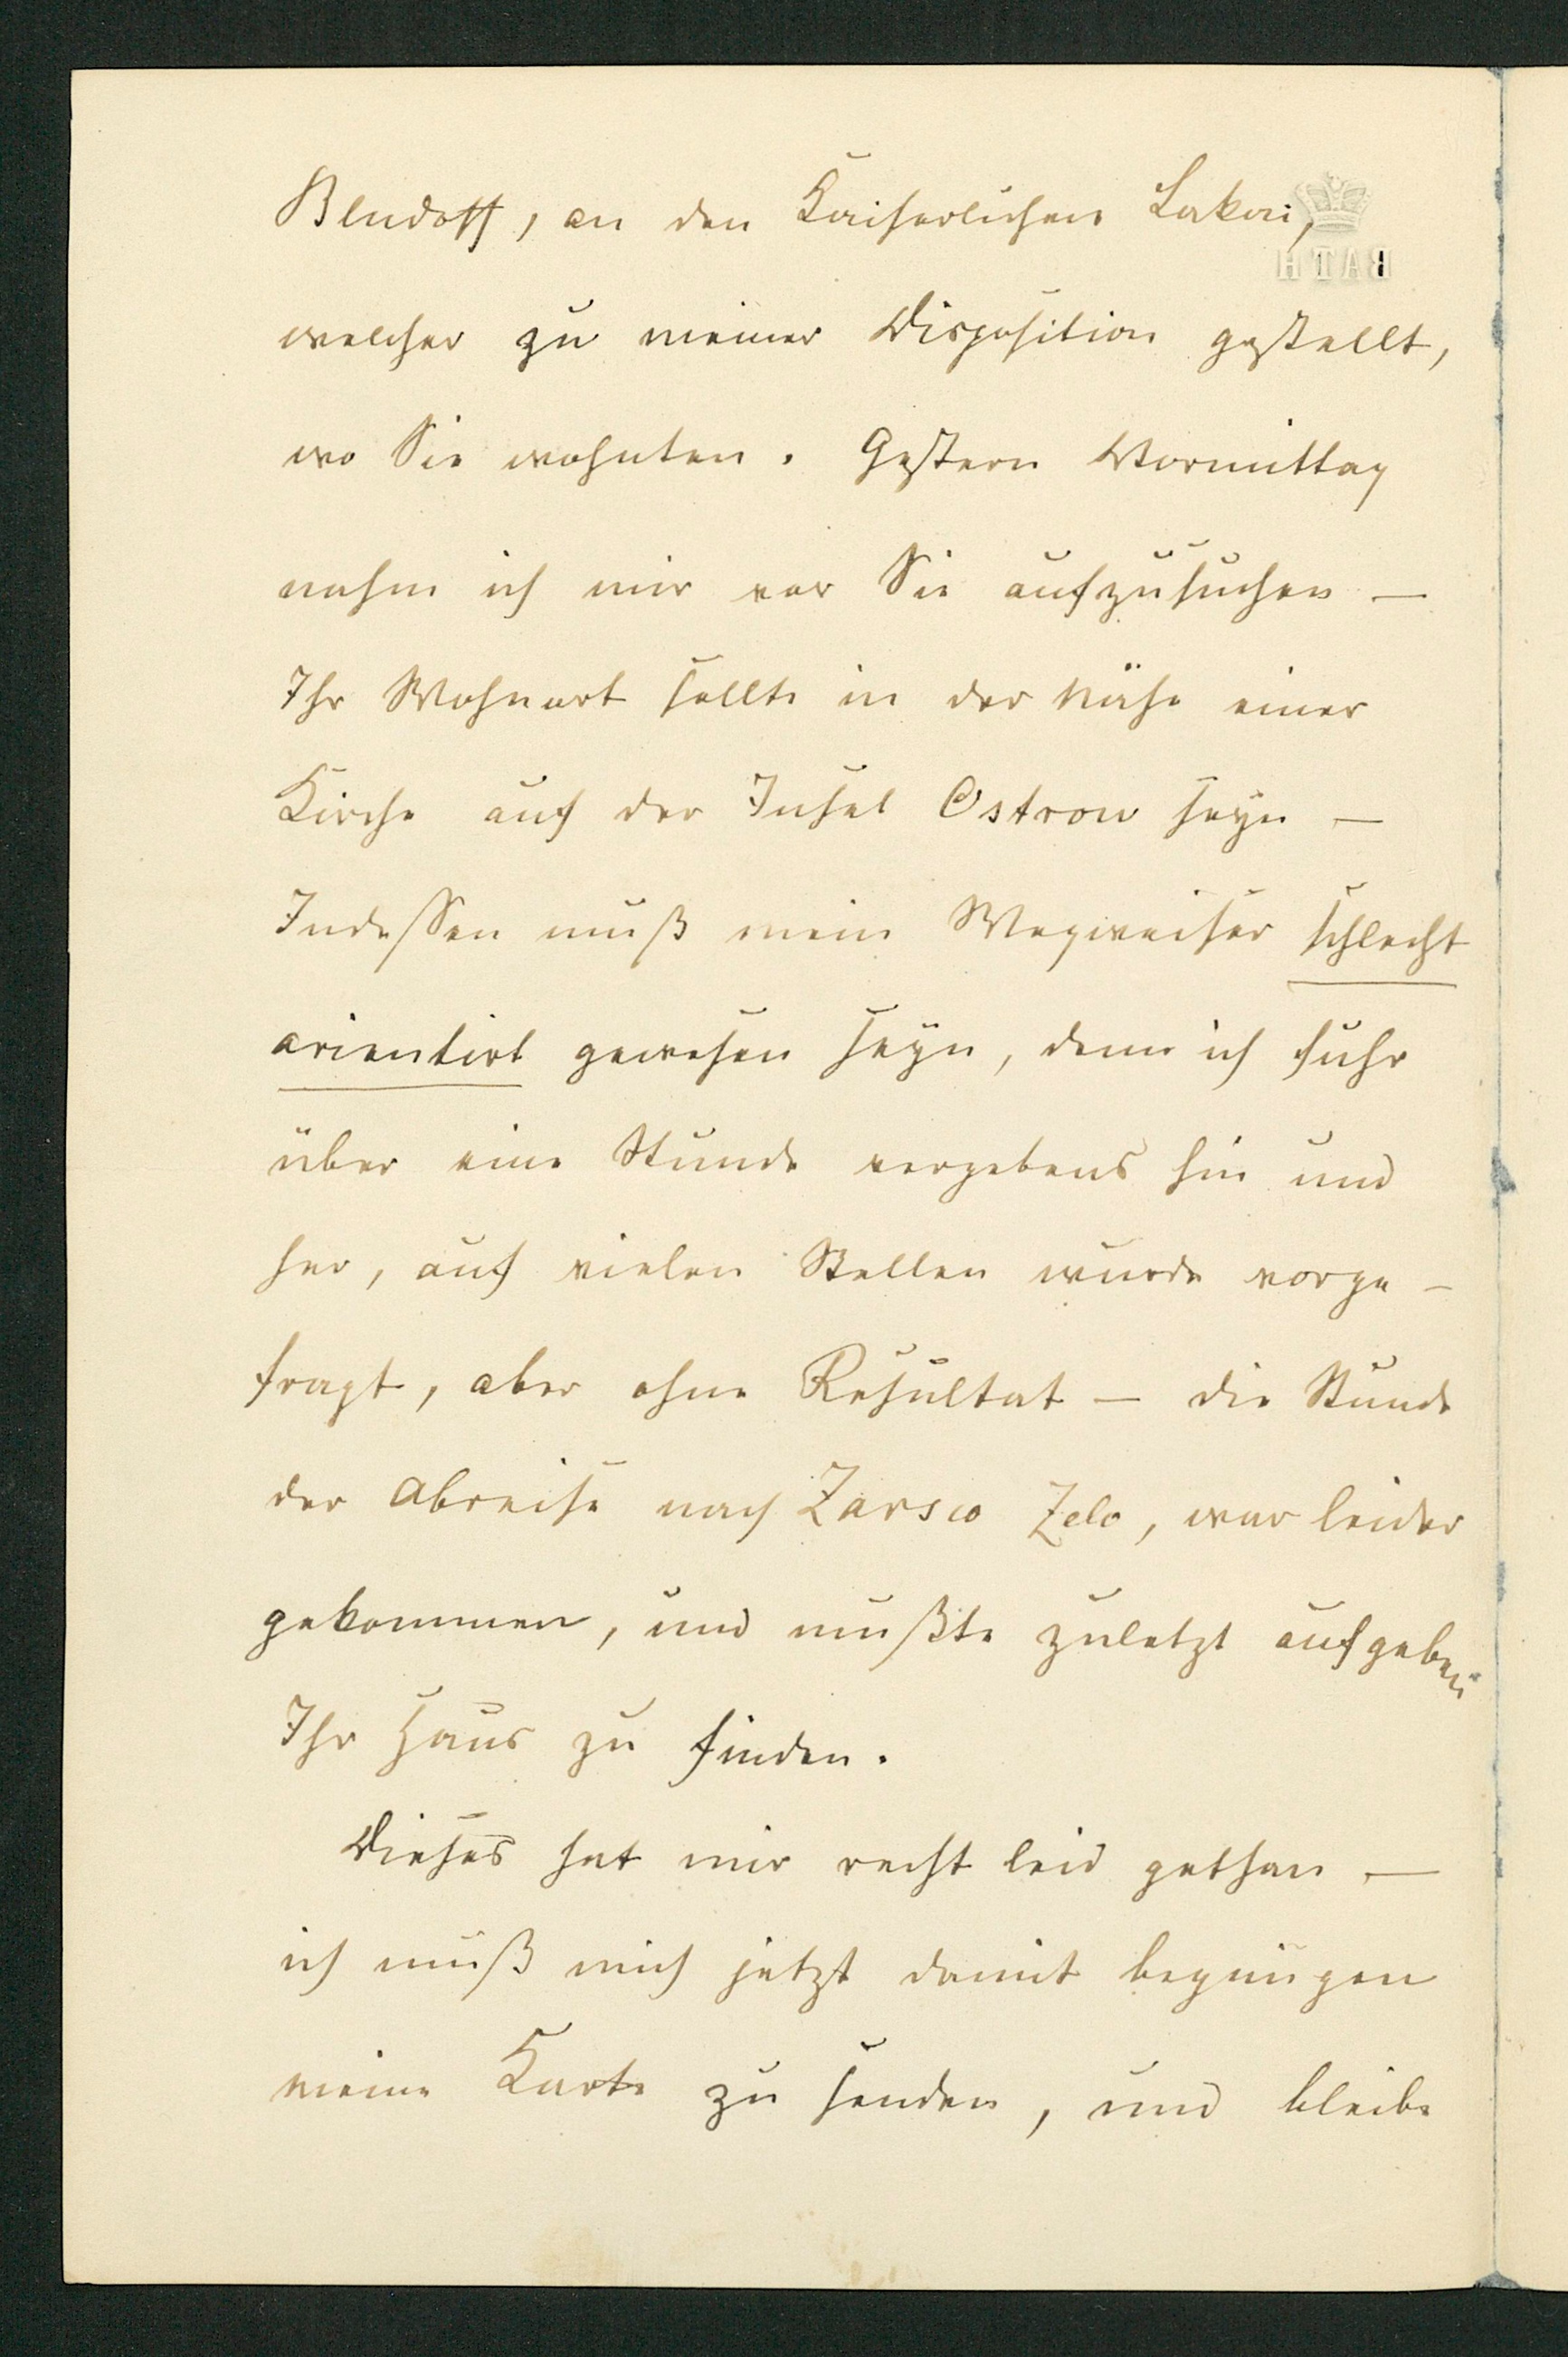 Bludoff, an den Kaiserlichen Lakai,
BATH
welcher zu meiner Disposition gestellt,
wo Sie wohnten. Gestern Vormittag
nahm ich mir vor Sie aufzusuchen —
Ihr Wohnort sollte in der Nähe einer
Kirche auf der Insel Ostrow seyn —
Indessen muß mein Wegweiser schlecht
orientirt gewesen seyn, denn ich fuhr
über eine Stunde vergebens hin und
her, auf vielen Stellen wurde vorge-
fragt, aber ohne Resultat — die Stunde
der Abreise nach Zarsco Zelo, war leider
gekommen, und mußte zuletzt aufgeben
Ihr Haus zu finden.
Dieses hat mir recht leid gethan —
ich muß mich jetzt damit begnügen
meine Karte zu senden, und bleibe